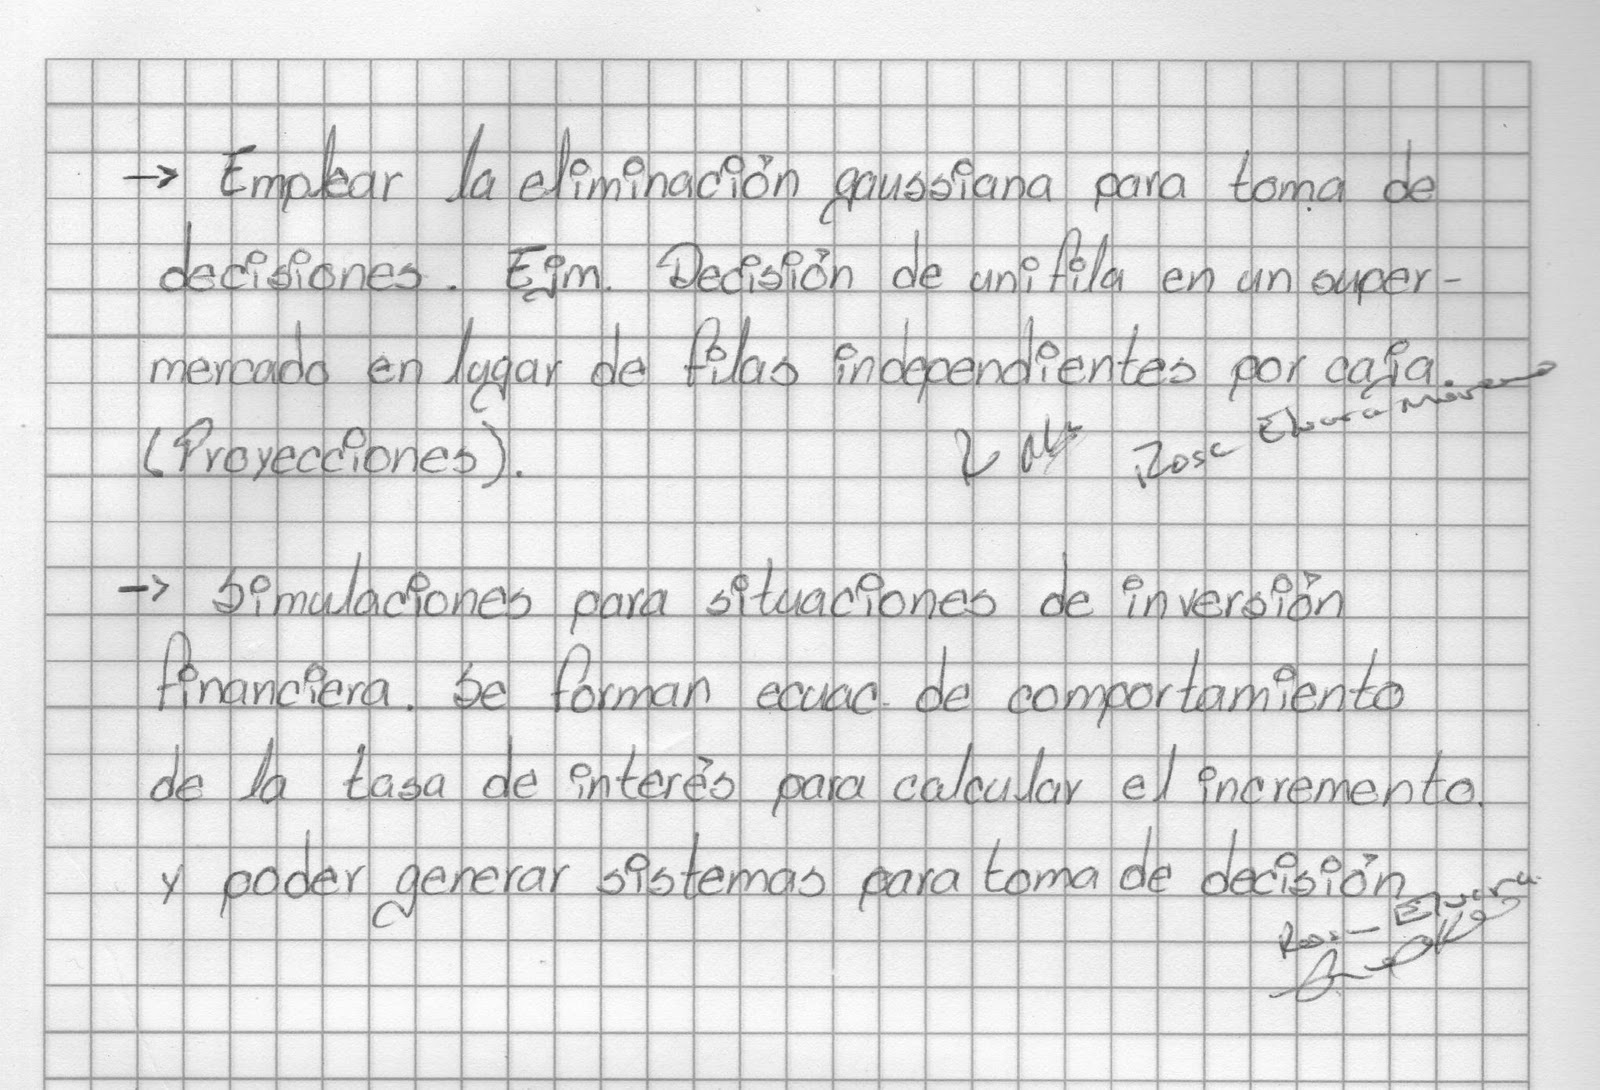 → Emplear la eliminación gaussiana para toma de
decisiones. Ejm. Decisión de unifila en un super-
mercado en lugar de filas independientes por caja.
(Proyecciones).
Rosa Elvira
→ Simulaciones para situaciones de inversión
financiera. Se forman ecuac. de comportamiento
de la tasa de interés para calcular el incremento.
y poder generar sistemas para toma de decisión
Rosa Elvira